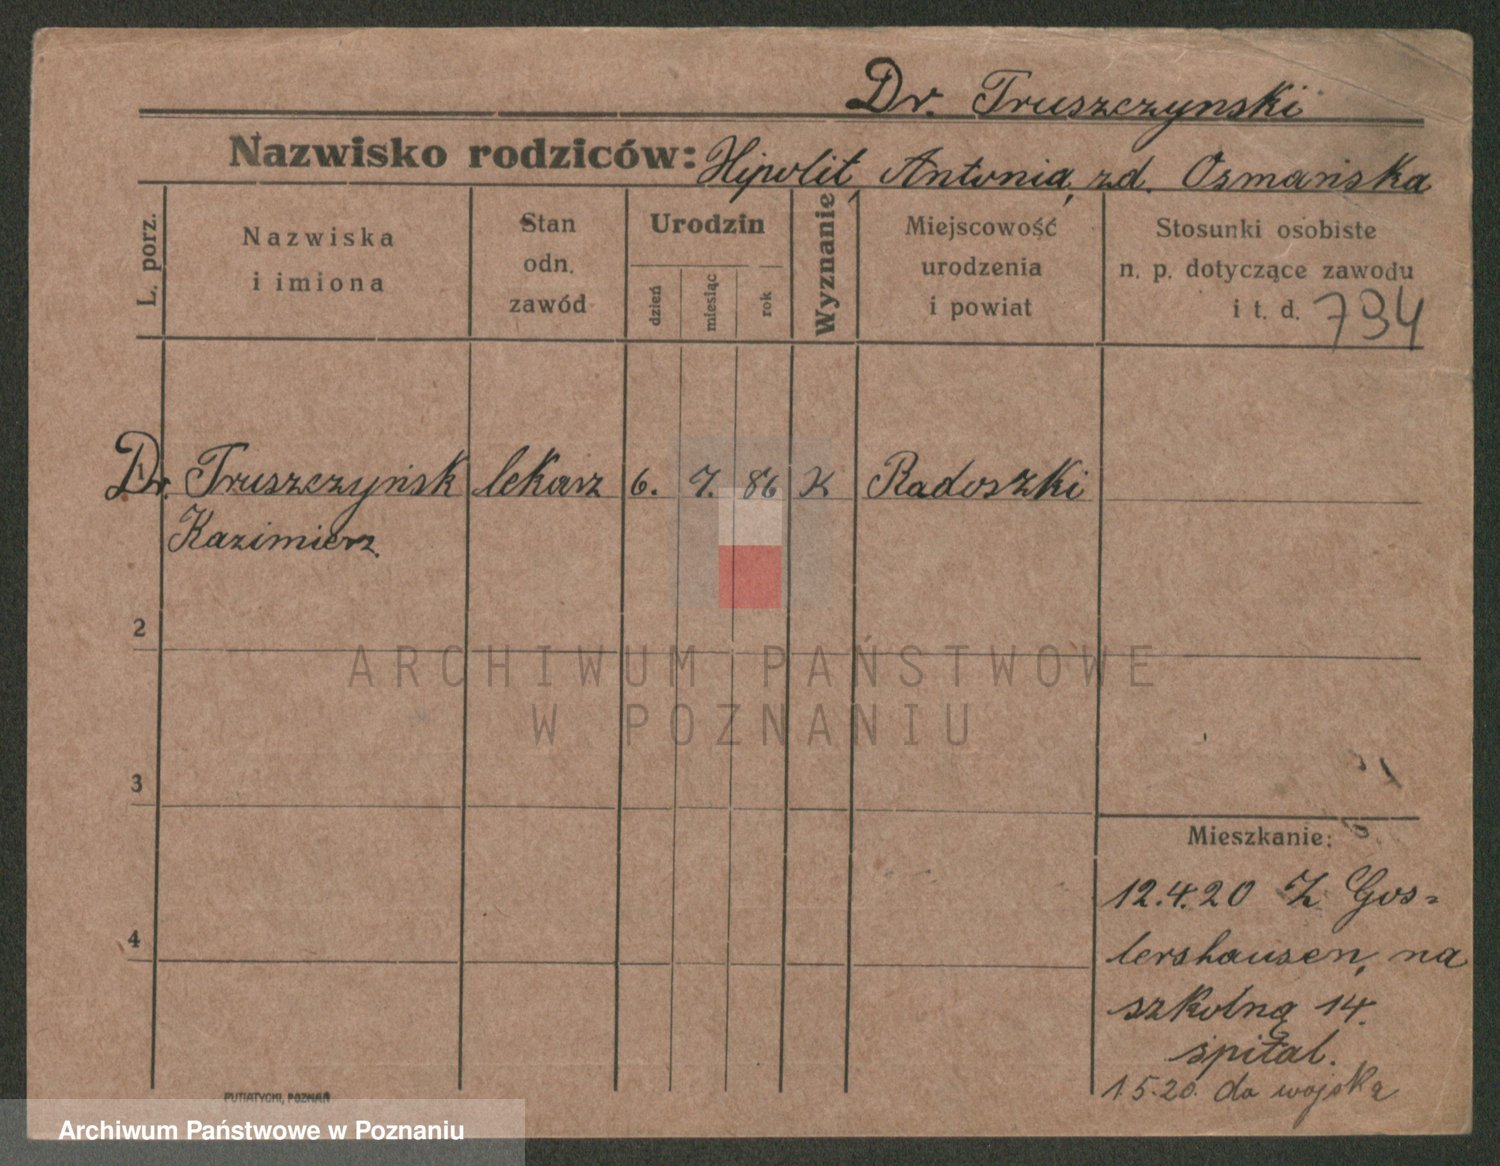 Dr. Truszczynski
Nazwisko rodziców: Hipolit, Antonia, zd. Osmańska
L. porz.
Nazwiska
i imiona
Stan
odn.
zawód
Urodzin
dzień
miesiąc
rok
Wyznanie
Miejscowość
urodzenia
i powiat
Stosunki osobiste
n. p. dotyczące zawodu
i t. d. 794
1
Dr. Truszczyńsk lekarz 6. 7. 86 K Radoszki
Kazimierz
2
ARCHIWUM PAŃSTWOWE
W POZNANIU
3
Mieszkanie:
12.4.20 Z Gos-
lershausen, na
4
szkolną 14.
szpital.
1.5.20. do wojska
PUTIATYCKI, POZNAŃ
Archiwum Państwowe w Poznaniu